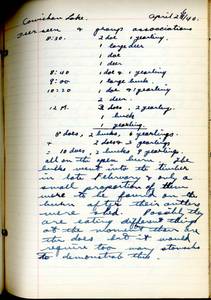 Cowichan Lake. April 28/40.
Deer seen & groups associations
8:30. 2 doe 1 yearling.
1 large deer
1 doe
1 deer
8:40 1 doe & 1 yearling
9:00 1 large buck.
10:20 1 doe & 1 yearling
2 deer.
12 M. 3 does, 2 yearlings.
1 buck
1 yearling.
8 does, 2 bucks, 6 yearlings.
& 2 does & 2
= 10 does, 2 bucks 8 yearlings.
all on the open burn. The
bucks went into the timber
in late February & only a
small proportion of them
were to be found on the
burn after their antlers
were shed. Possibly they
are eating different things
at the moment than are
the does but it would
require too many stomachs
to demonstrate this.